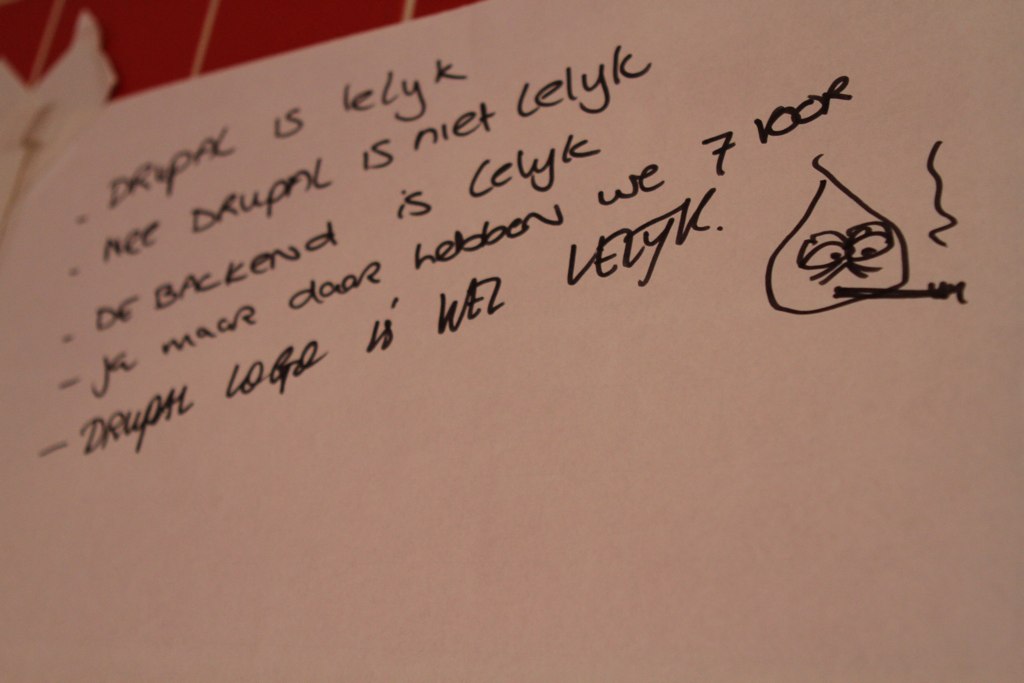 - DRUPAL is lelyk
- nee DRUPAL is niet lelyk
- DE BACKEND is lelyk
- ja maar daar hebben we 7 voor
- DRUPAL LOGO is WEL LELYK.